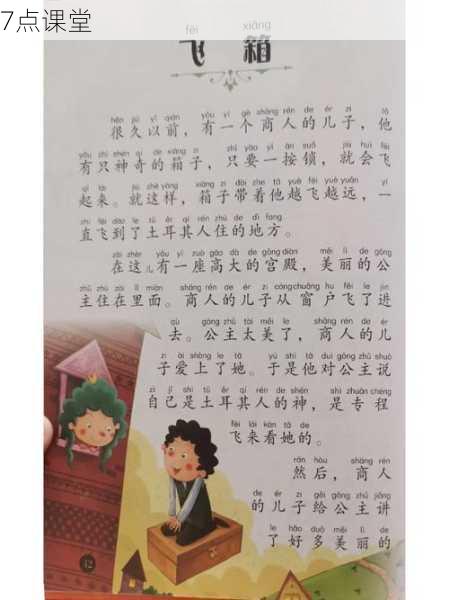 7点课堂
fēi xiāng
飞 箱
hěn jiǔ yǐ qián yǒu yí gè shāng rén de ér zi tā
很久以前，有一个商人的儿子，他
yǒu zhī shén qí de xiāng zi zhǐ yào yí àn suǒ jiù huì fēi
有只神奇的箱子，只要一按锁，就会飞
qǐ lái jiù zhè yàng xiāng zi dài zhe tā yuè fēi yuè yuǎn yì
起来。就这样，箱子带着他越飞越远，一
zhí fēi dào le tǔ ěr qí rén zhù de dì fang
直飞到了土耳其人住的地方。
zài zhèr yǒu yí zuò gāo dà de gōng diàn měi lì de gōng
在这儿有一座高大的宫殿，美丽的公
zhǔ zhù zài lǐ miàn shāng rén de ér zi cóng chuāng hu fēi le jìn
主住在里面。商人的儿子从窗户飞了进
qù gōng zhǔ tài měi le shāng rén de ér
去。公主太美了，商人的儿
zi ài shàng le tā yú shì tā duì gōng zhǔ shuō
子爱上了她。于是他对公主说
zì jǐ shì tǔ ěr qí rén de shén shì zhuān chéng
自己是土耳其人的神，是专程
fēi lái kàn tā de
飞来看她的。
rán hòu shāng rén
然后，商人
de ér zi gěi gōng zhǔ jiǎng
的儿子给公主讲
le hǎo duō měi lì de
了好多美丽的
42